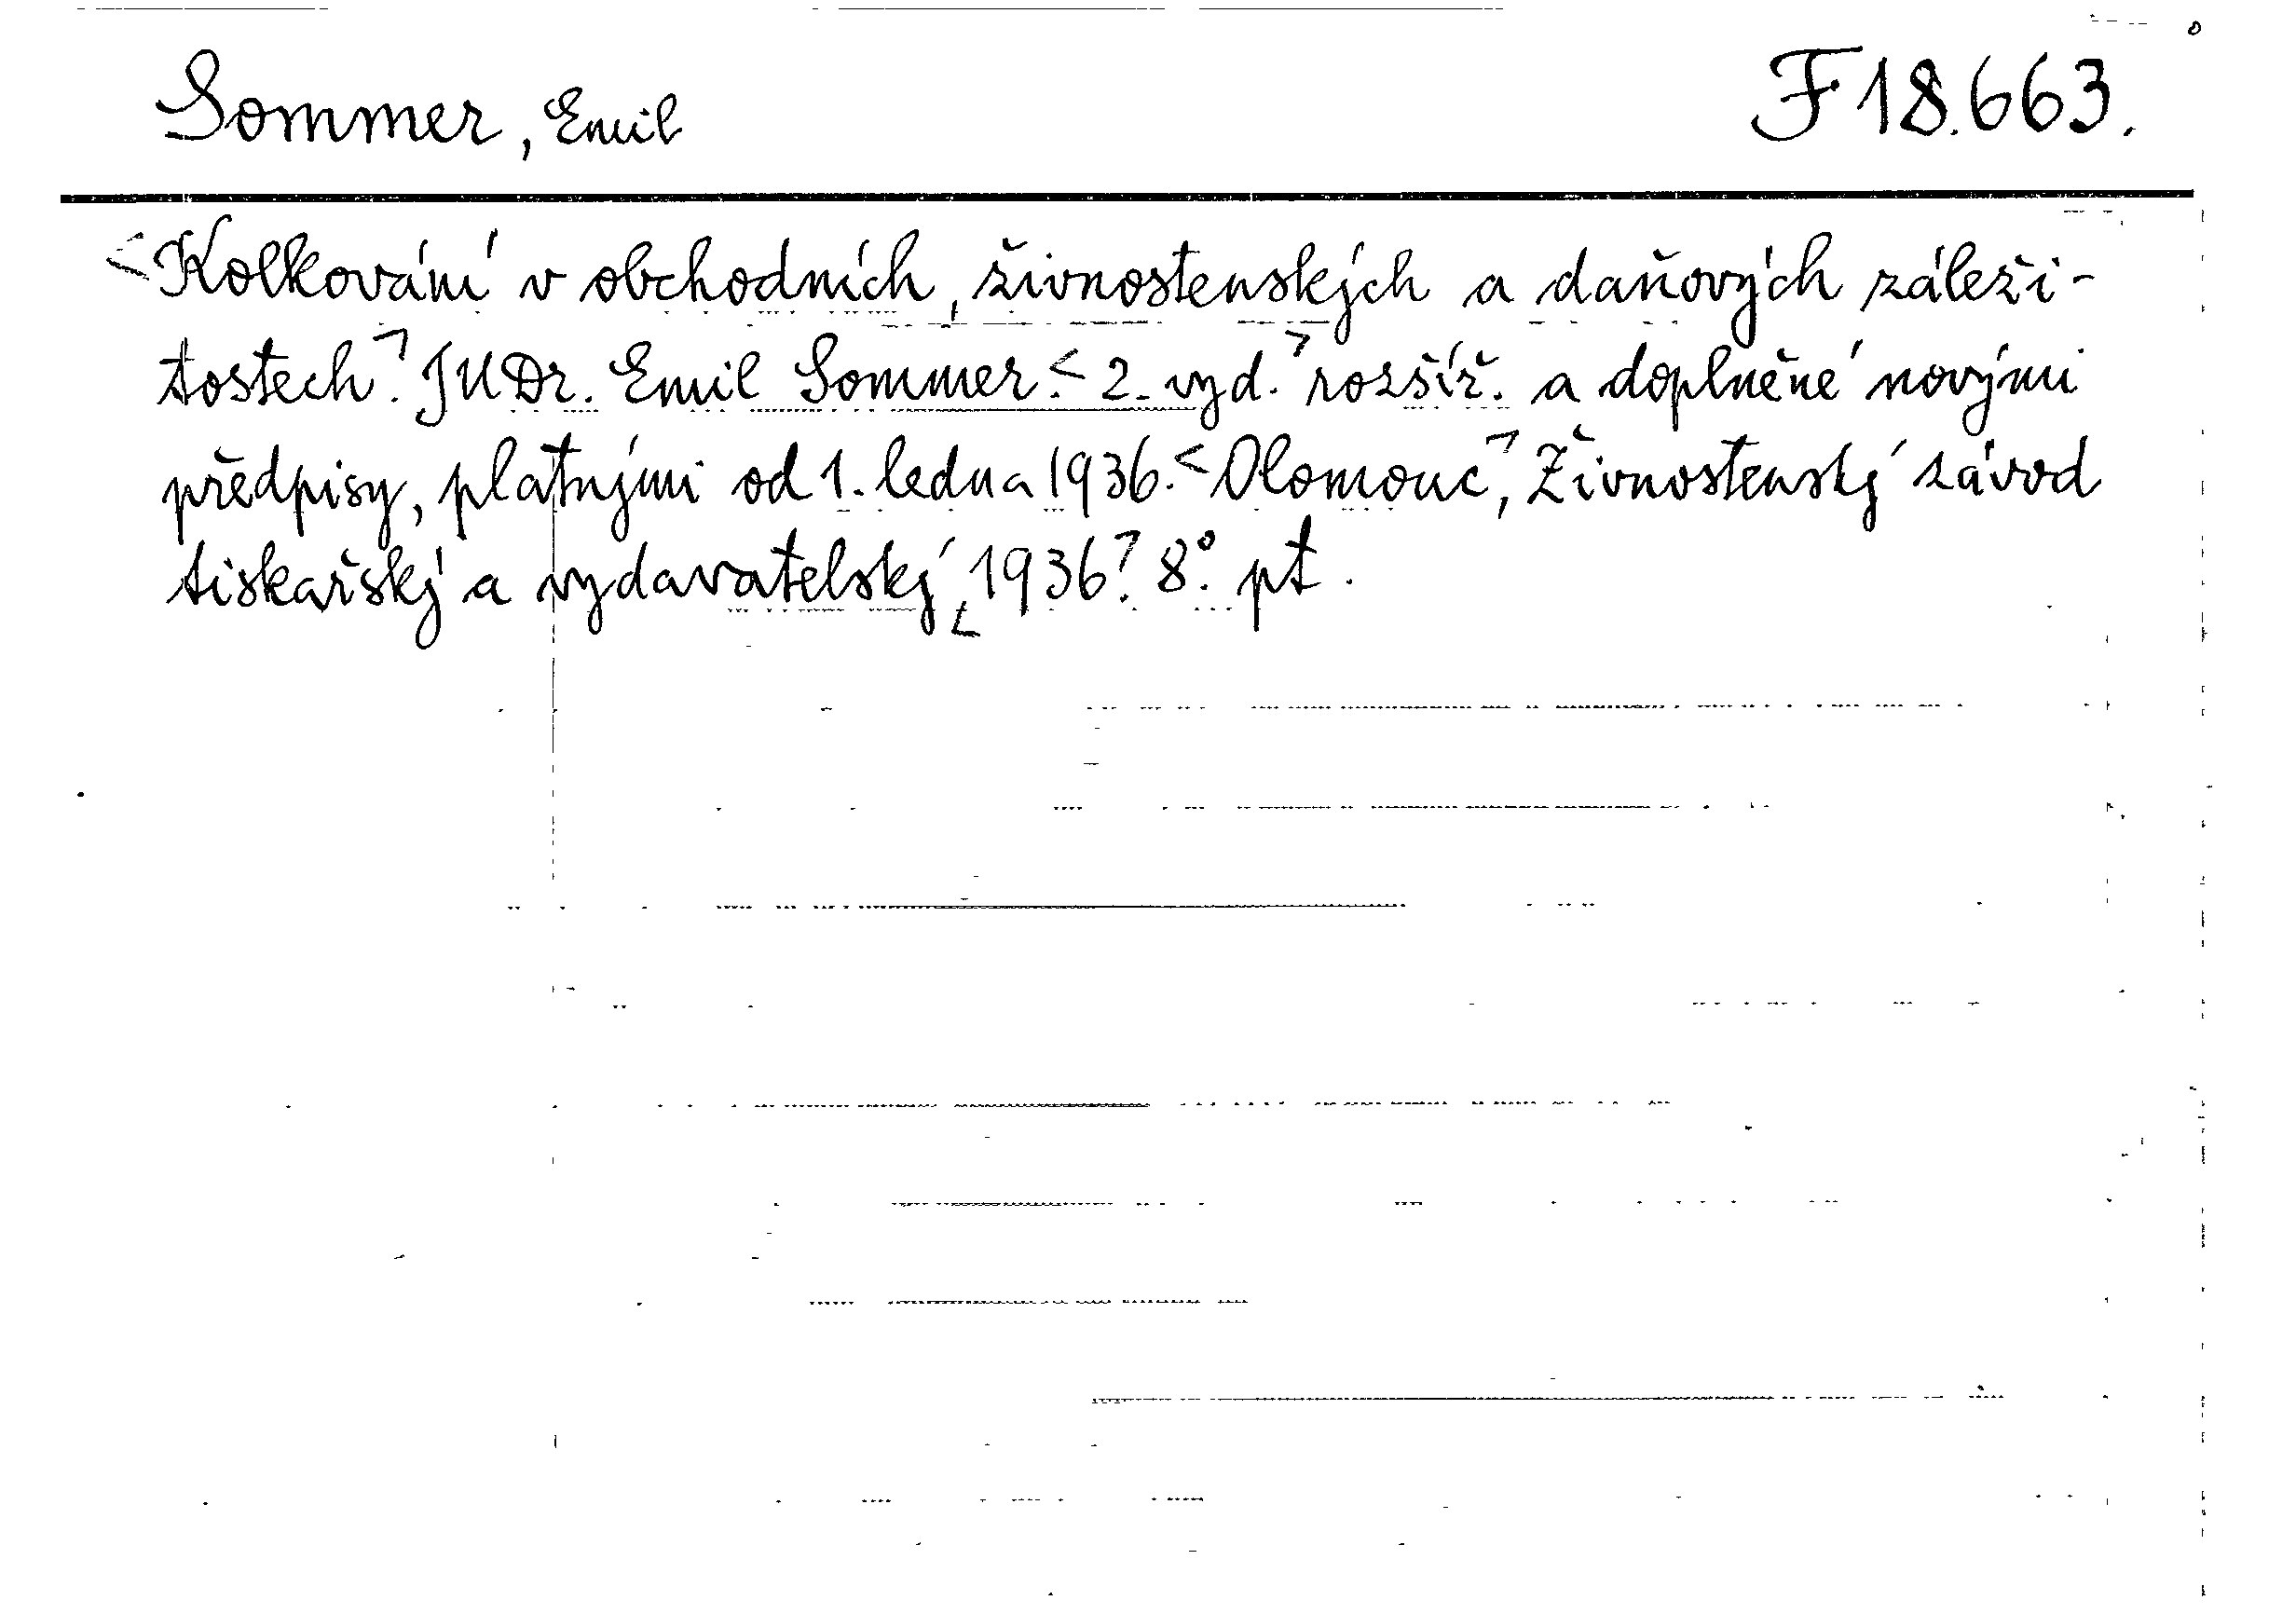 Sommer, Emil F 18.663.
<Kolkování v obchodních, živnostenských a daňových záleži-
tostech.> JUDr. Emil Sommer. <2. vyd.> rozšíř. a doplněné novými
předpisy, platnými od 1. ledna 1936. <Olomouc>, Živnostenský závod
tiskařský a vydavatelský, <1936>. 8°. pt.